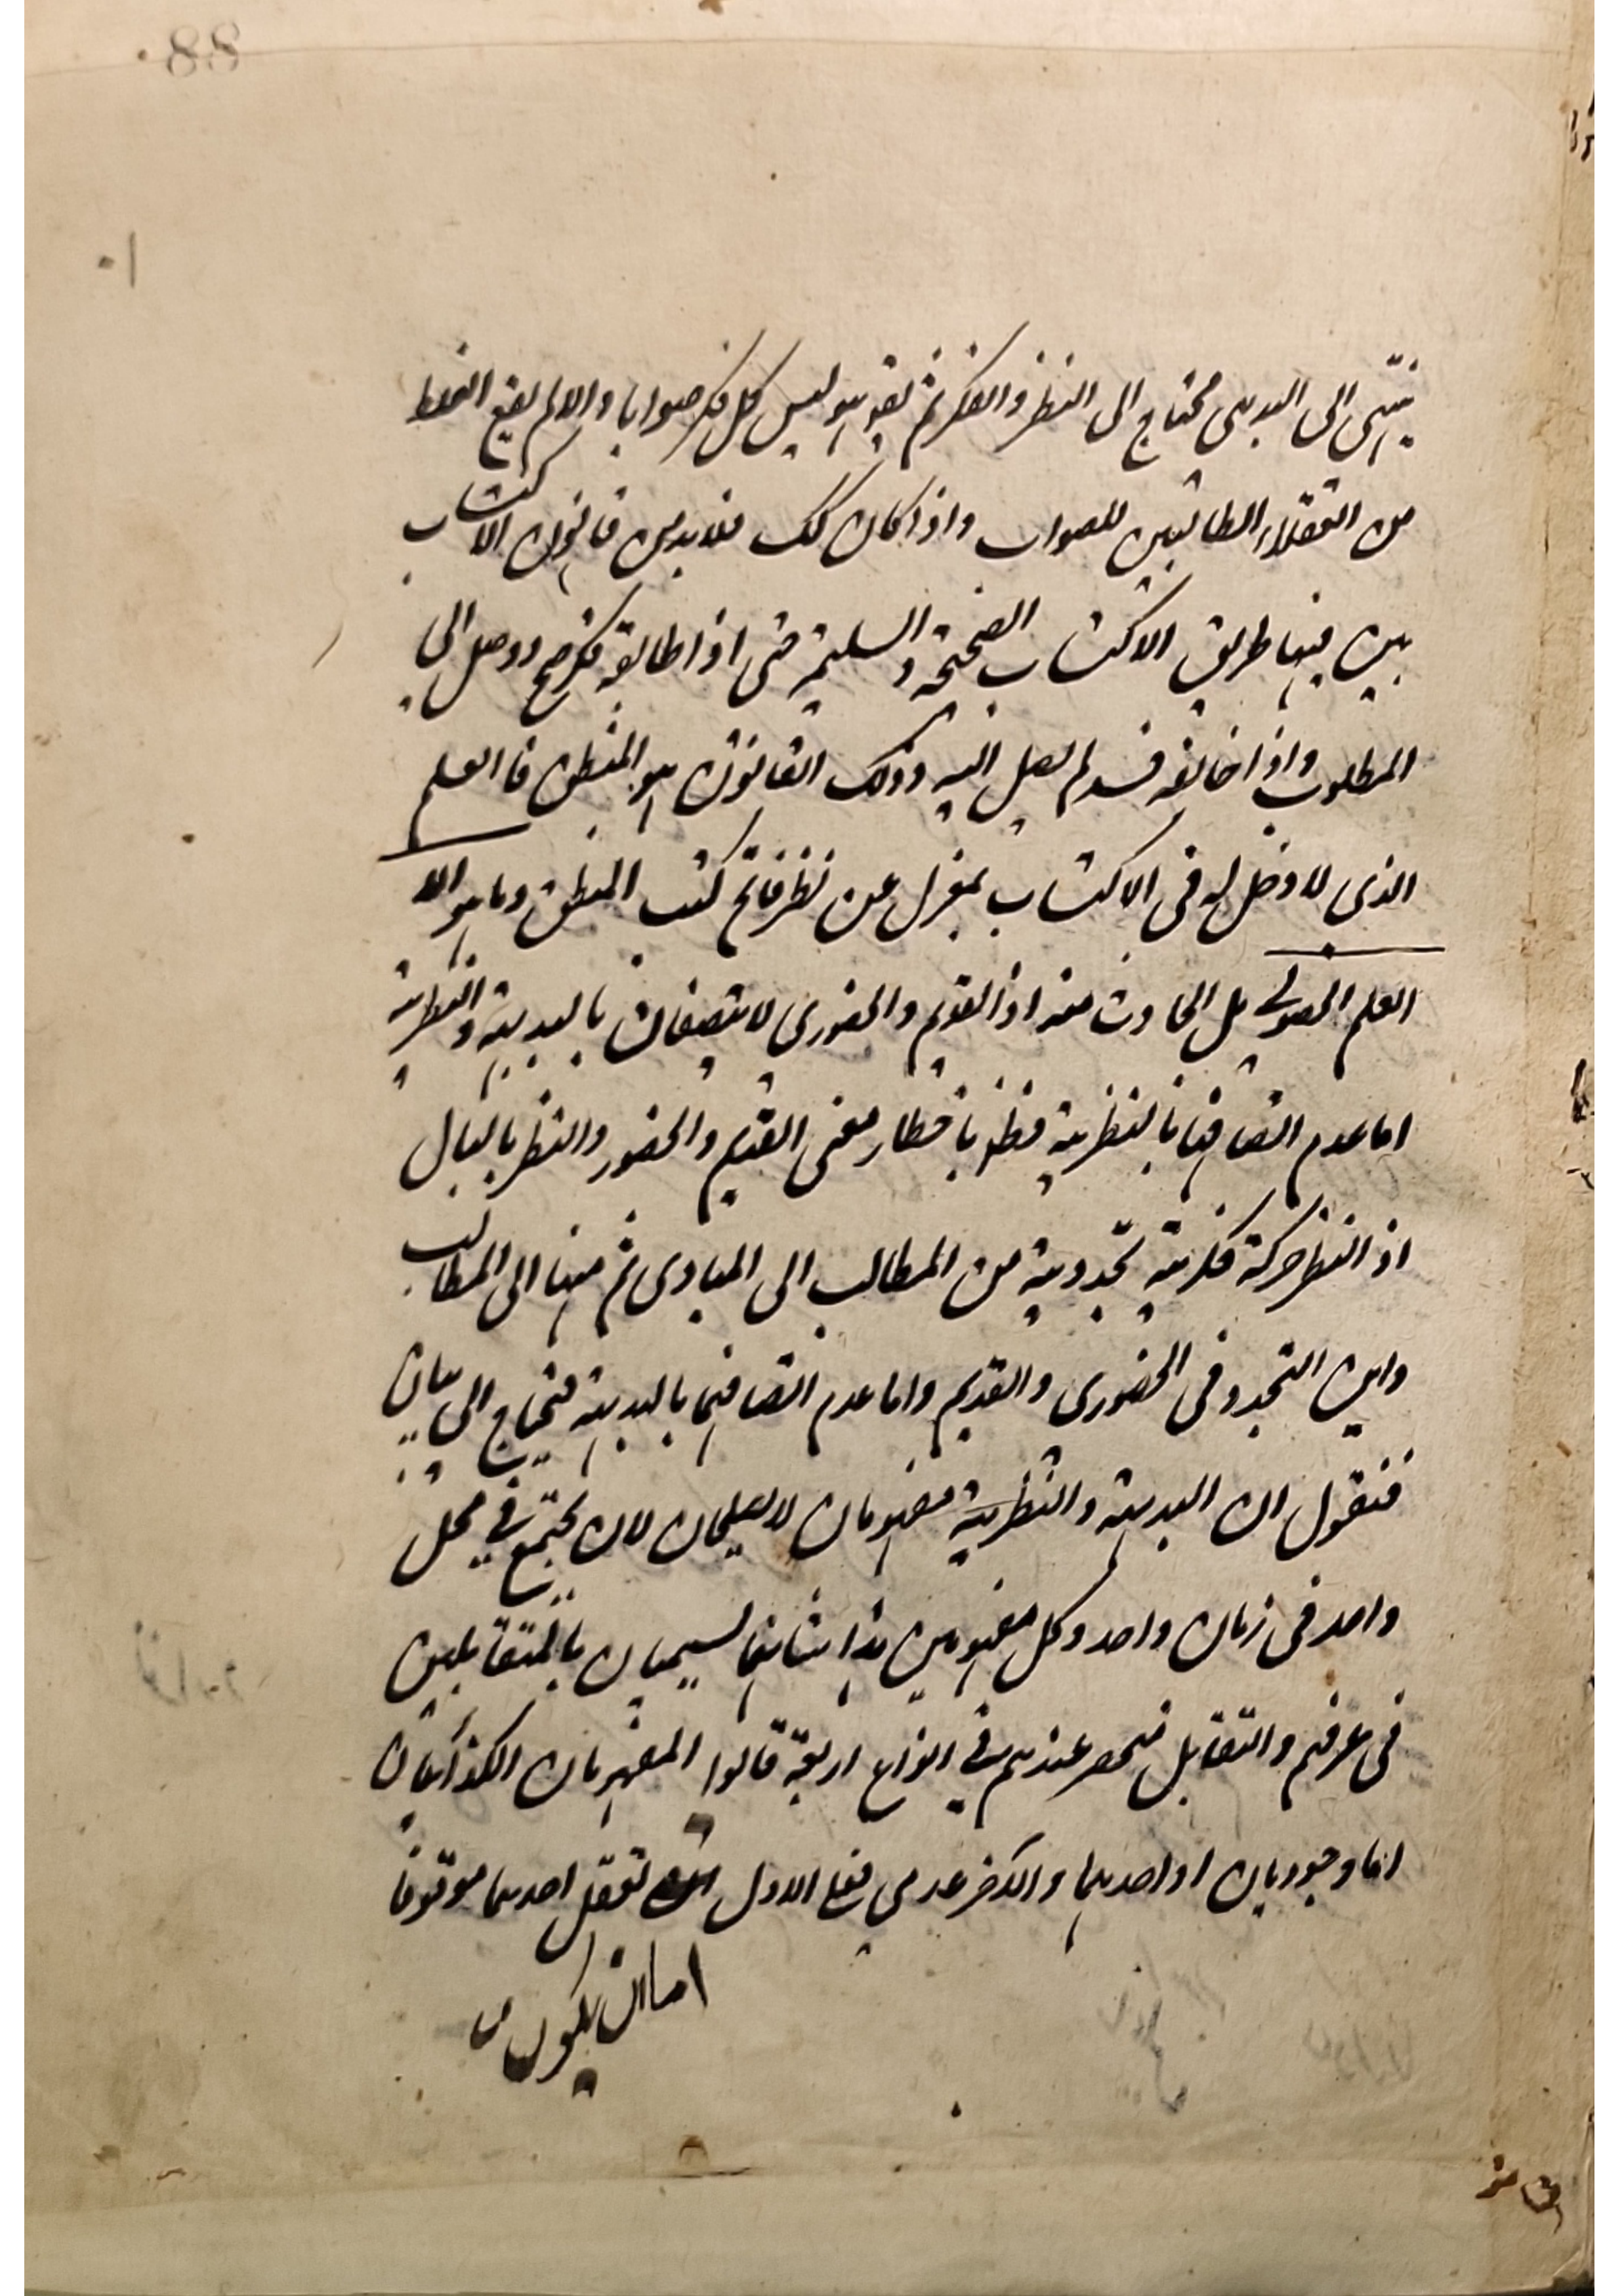 88
١٠
ينتهى الى البديهى محتاج الى النظر والفكر ثم ليس كل فكر صوابا والا لم يقع الغلط
من العقلاء الطالبين للصواب واذا كان كك فلا بد من قانون الاكتساب
يبين فيها طريق الاكتساب الصحيحة والسليمة حتى اذا طابقه فكر صح ووصل الى
المطلوب واذا خالفه فسد لم يصل اليه وذلك القانون هو المنطق فالعلم
الذى لا دخل له فى الاكتساب بمعزل عن نظر فاتح كتب المنطق وما هو الا
العلم الحصولى بل الحادث منه اذ القديم والحضورى لا يتصفان بالبديهية والنظرية
اما عدم اتصافها بالنظرية فظ باخطار معنى القديم والحضور والنظر بالبال
اذ النظر حركة فكرية تجددية من المطالب الى المبادى ثم منها الى المطالب
واين التجدد فى الحضورى والقديم واما عدم اتصافهما بالبديهية فيحتاج الى بيان
فنقول ان البديهية والنظرية مفهومان لا يصلحان لان يجتمع فى محل
واحد فى زمان واحد وكل مفهومين هذا شانهما يسميان بالمتقابلين
فى عرفهم والتقابل منحصر عندهم فى انواع اربعة قالوا المفهومان الكذائيان
اما وجوديان او احدهما والاخر عدمى فعلى الاول تعقل احدهما موقوفا
اما ان يكون